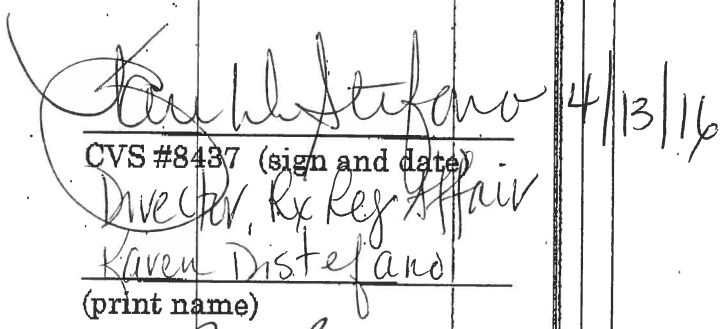 Karen DiStefano 4/13/16
CVS #8437 (sign and date)
Director, Rx Reg Affair
Karen Distefano
(print name)